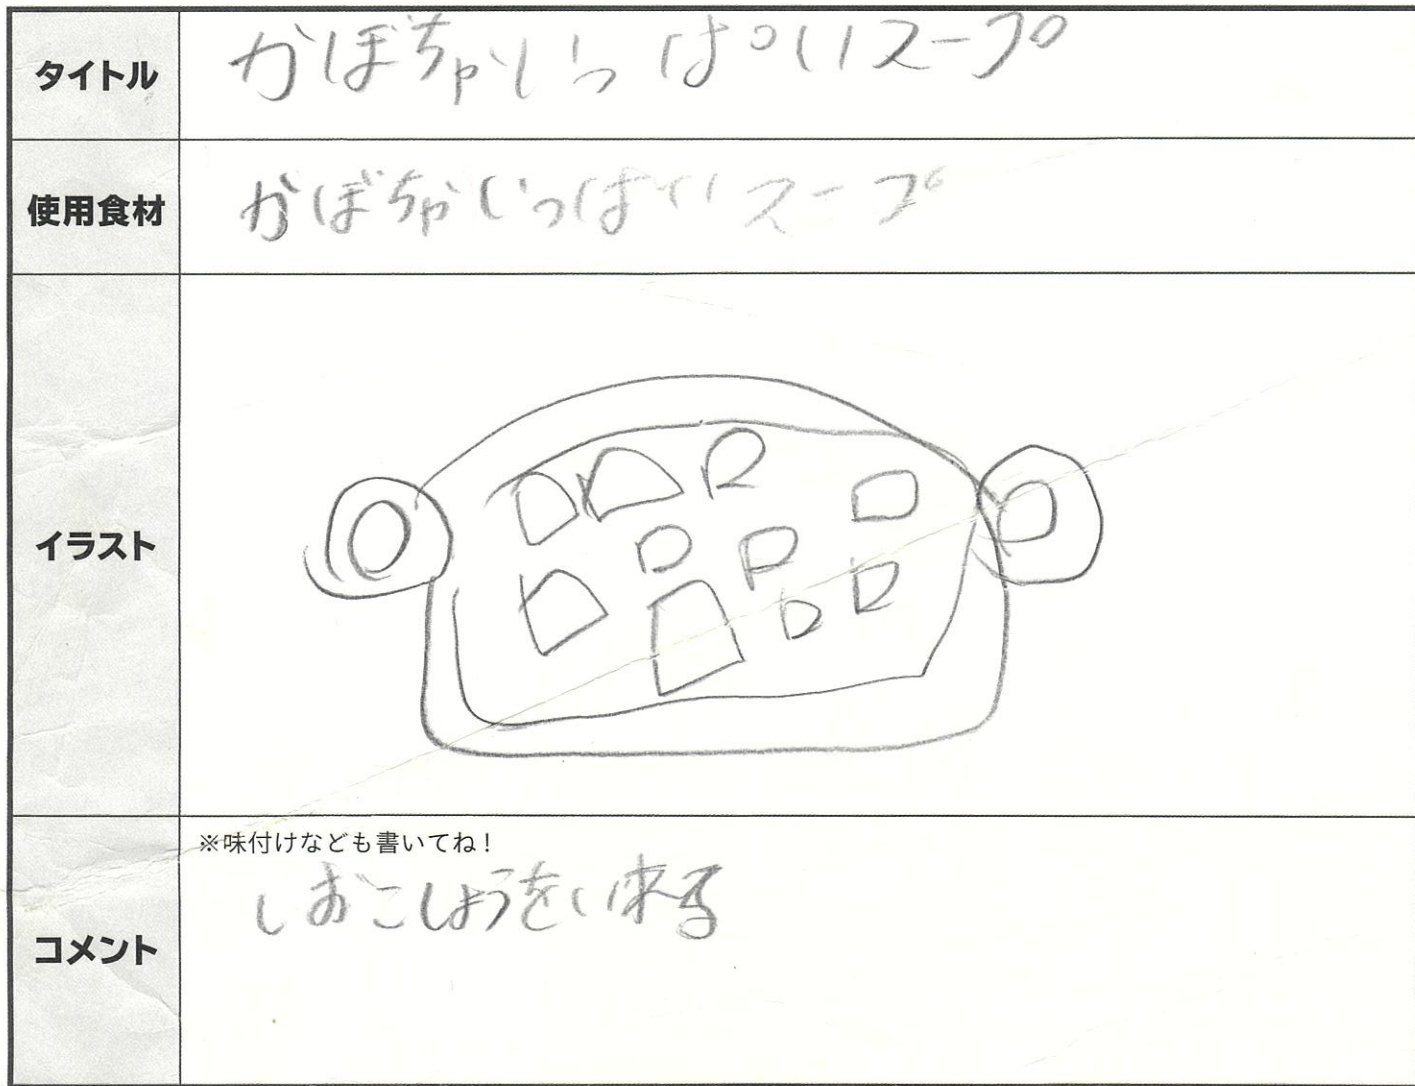 タイトル
かぼちゃいっぱいスープ
使用食材
かぼちゃいっぱいスープ
イラスト
※味付けなども書いてね！
コメント
しおこしょうをい来る